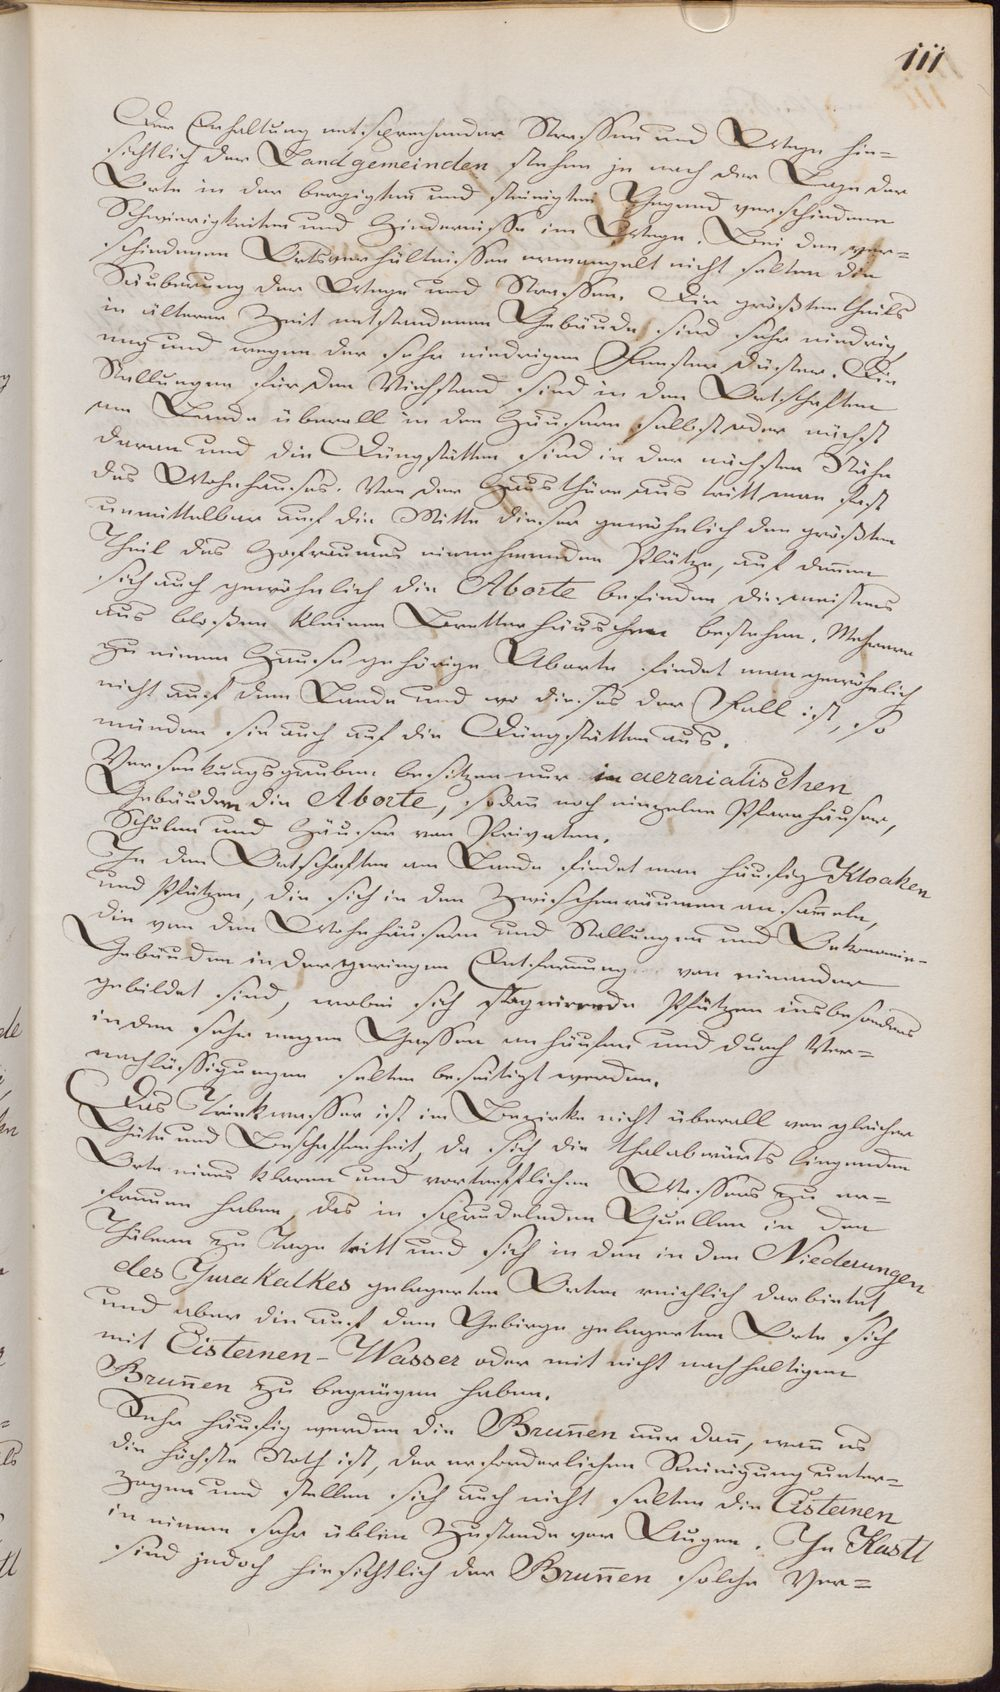 111
Der Erhaltung entsprechender Strassen und Wege hin=
sichtlich der Landgemeinden stehen je nach der Lage der
Orte in der bergigten und steinigten Gegend verschiedene
Schwierigkeiten und Hindernisse im Wege. Bei den ver=
schiedenen Ortsverhältnissen ermangelt nicht selten die
Säuberung der Wege und Strassen. Die größtentheils
in älterer Zeit entstandenen Gebäude sind sehr niedrig,
eng und wegen der sehr niedrigen Fenster düster. Die
Stallungen für den Viehstand sind in den Ortschaften
am Lande überall in den Häusern selbst oder nächst
daran und die Düngstätten sind in der nächsten Nähe
des Wohnhauses. Von der Hausthüre aus tritt man fast
unmittelbar auf die Mitte dieser gewöhnlich den größten
Theil des Hofraumes einnehmenden Plätze, auf denen
sich auch gewöhnlich die Aborte befinden die meistens
aus bloßen kleinen Bretterhäuschen bestehen. Mehrere
zu einem Hause gehörige Aborte findet man gewöhnlich
nicht auf dem Lande und wo dieses der Fall ist, so
münden sie auch auf die Düngstätten aus.
Versenkungsgruben besitzen nur in aerarialischen
Gebäuden die Aborte, sodañ noch einzelne Pfarrhäuser,
Schulen und Häuser von Privaten.
In den Ortschaften am Lande findet man häufig Kloaken
und Pfützen, die sich in den Zwischenräumen ansam̄eln,
die von den Wohnhäusern und Stallungen und Oekonomie-
Gebäuden in der geringen Entfernung von einander
gebildet sind, wobei sich stagnirende Pfützen insbesonders
in den sehr engen Gassen anhäufen und durch Ver=
nachlässigungen selten beseitigt werden.
Das Trinkwasser ist im Bezirke nicht überall von gleicher
Güte und Beschaffenheit, da sich die thalabwärts liegenden
Orte eines klaren und vortrefflichen Wassers zu er=
freuen haben, das in sprudelnden Quellen in den
Thälern zu Tage tritt und sich in den in den Niederungen
des Jurakalkes gelagerten Orten reichlich darbietet,
und aber die auf dem Gebirge gelagerten Orte sich
mit Cisternen-Wasser oder mit nicht nachhaltigen
Bruñen zu begnügen haben.
Sehr häufig werden die Bruñen nur dañ, wañ es
die höchste Noth ist, der erforderlichen Reinigung unter=
zogen und stellen sich auch nicht selten die Cisternen
in einem sehr üblen Zustande vor Augen. In Kastl
sind jedoch hinsichtlich der Bruñen solche Ver=